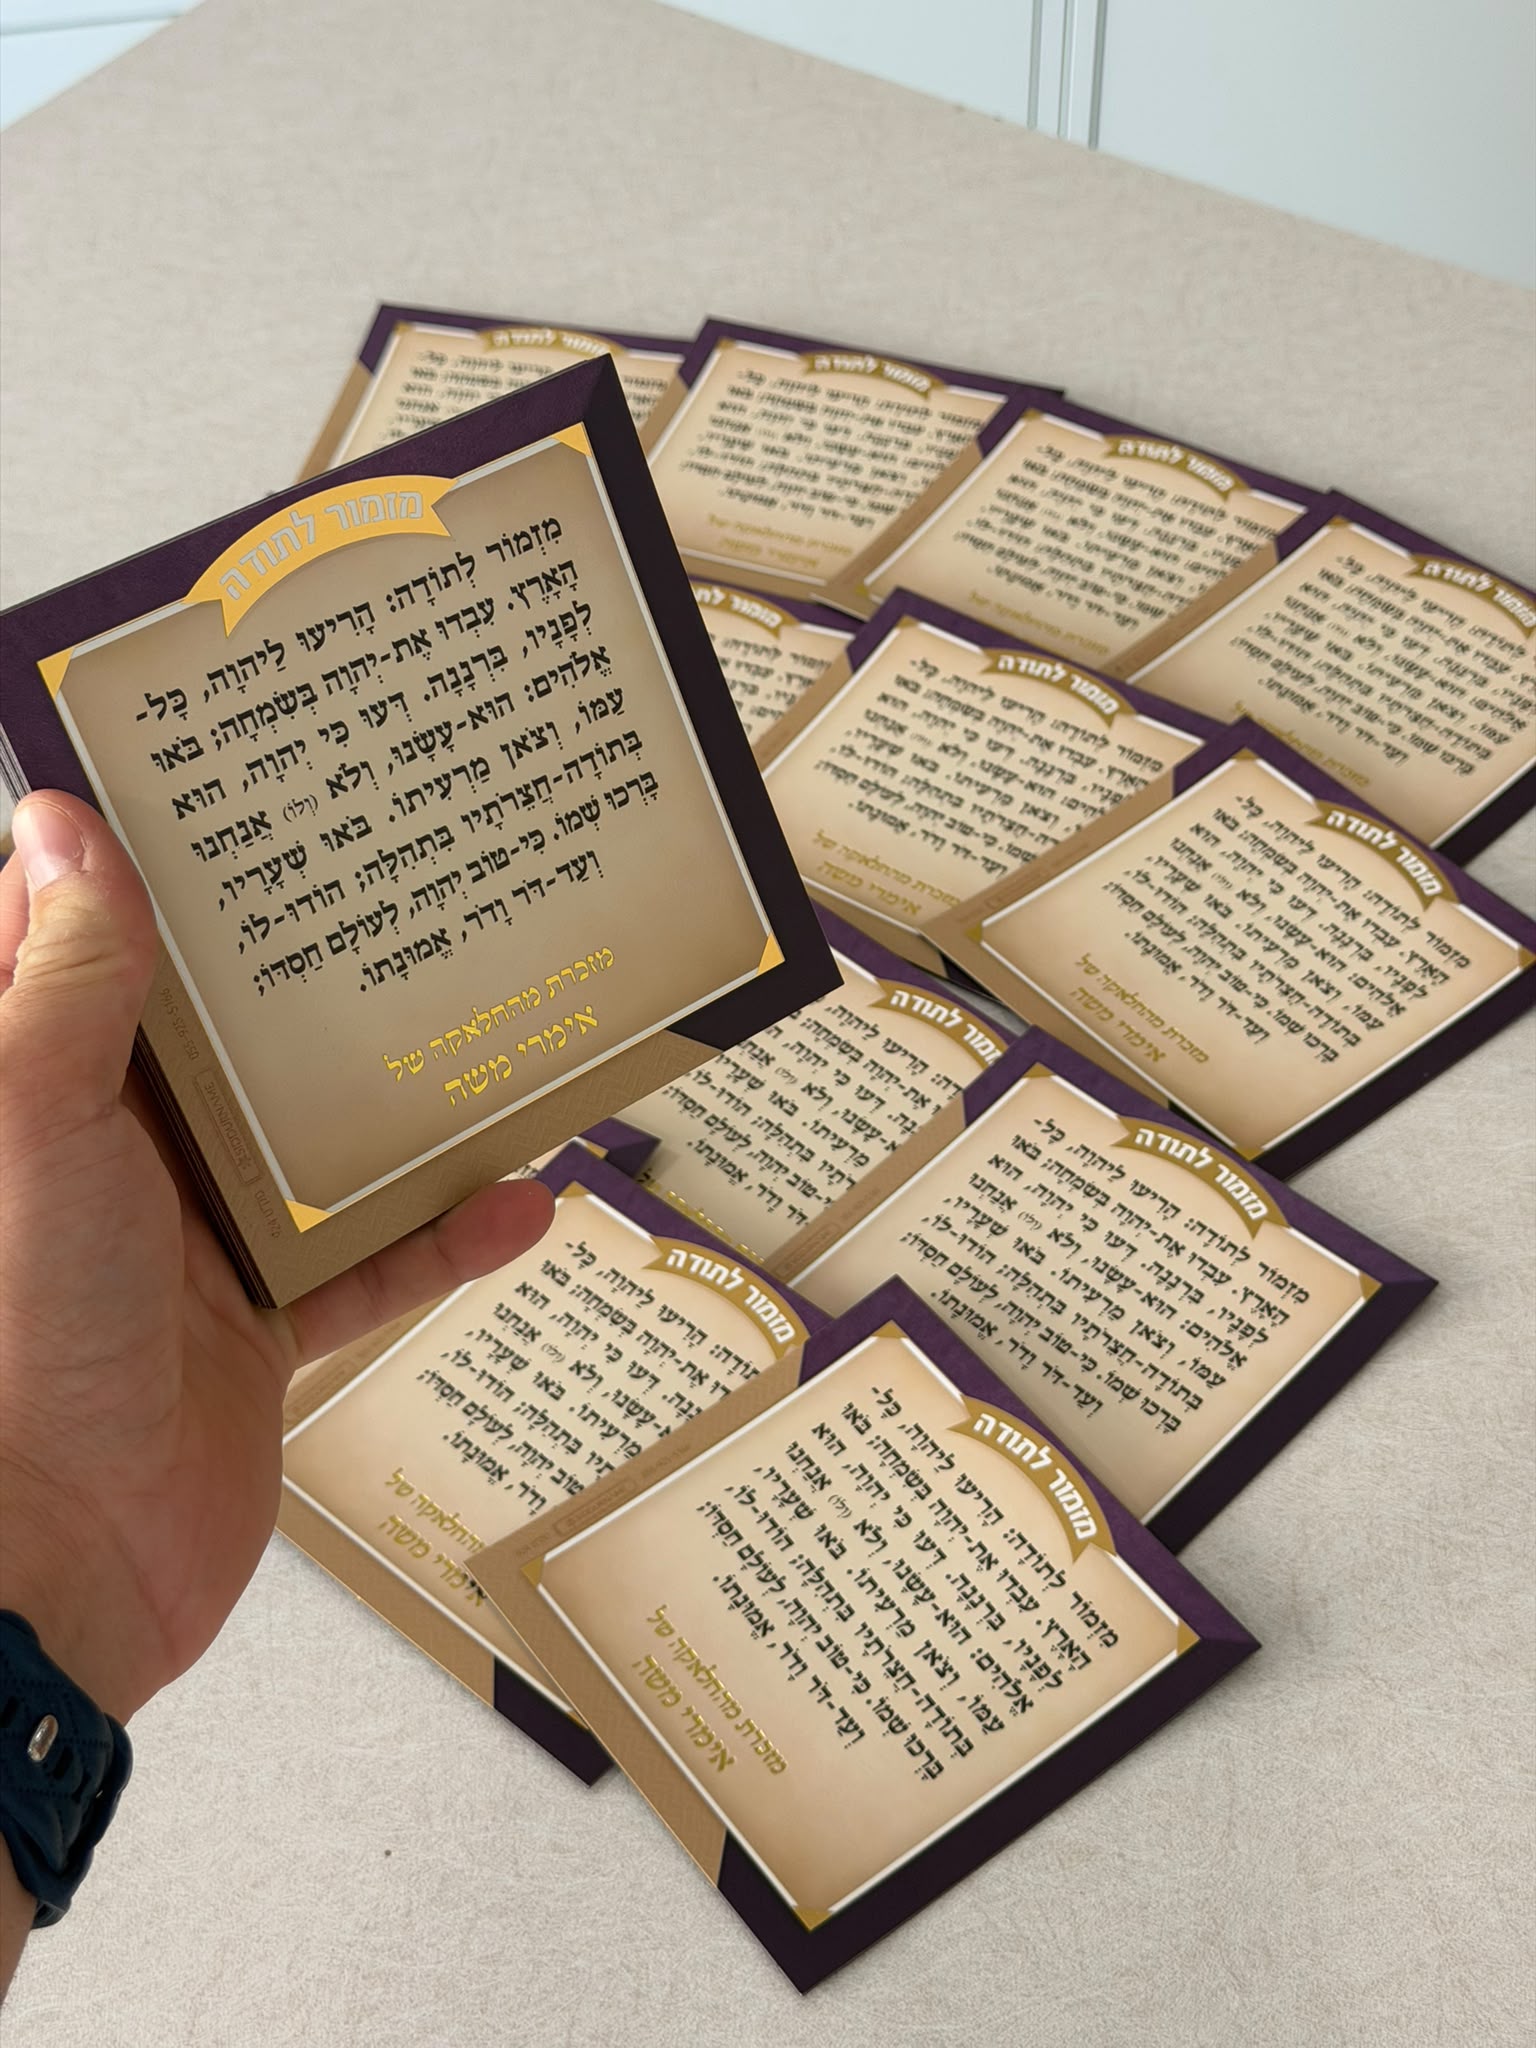 מזמור לתודה
מִזְמוֹר לְתוֹדָה: הָרִיעוּ לַיהוָה, כָּל-
הָאָרֶץ. עִבְדוּ אֶת-יְהוָה בְּשִׂמְחָה; בֹּאוּ
לְפָנָיו, בִּרְנָנָה. דְּעוּ כִּי יְהוָה, הוּא
אֱלֹהִים: הוּא-עָשָׂנוּ, וְלֹא (וְלוֹ) אֲנַחְנוּ
עַמּוֹ, וְצֹאן מַרְעִיתוֹ. בֹּאוּ שְׁעָרָיו,
בְּתוֹדָה-חֲצֵרֹתָיו בִּתְהִלָּה; הוֹדוּ-לוֹ,
בָּרְכוּ שְׁמוֹ. כִּי-טוֹב יְהוָה, לְעוֹלָם חַסְדּוֹ;
וְעַד-דֹּר וָדֹר, אֱמוּנָתוֹ.
מזכרת מהחלאקה של
אימרי משה